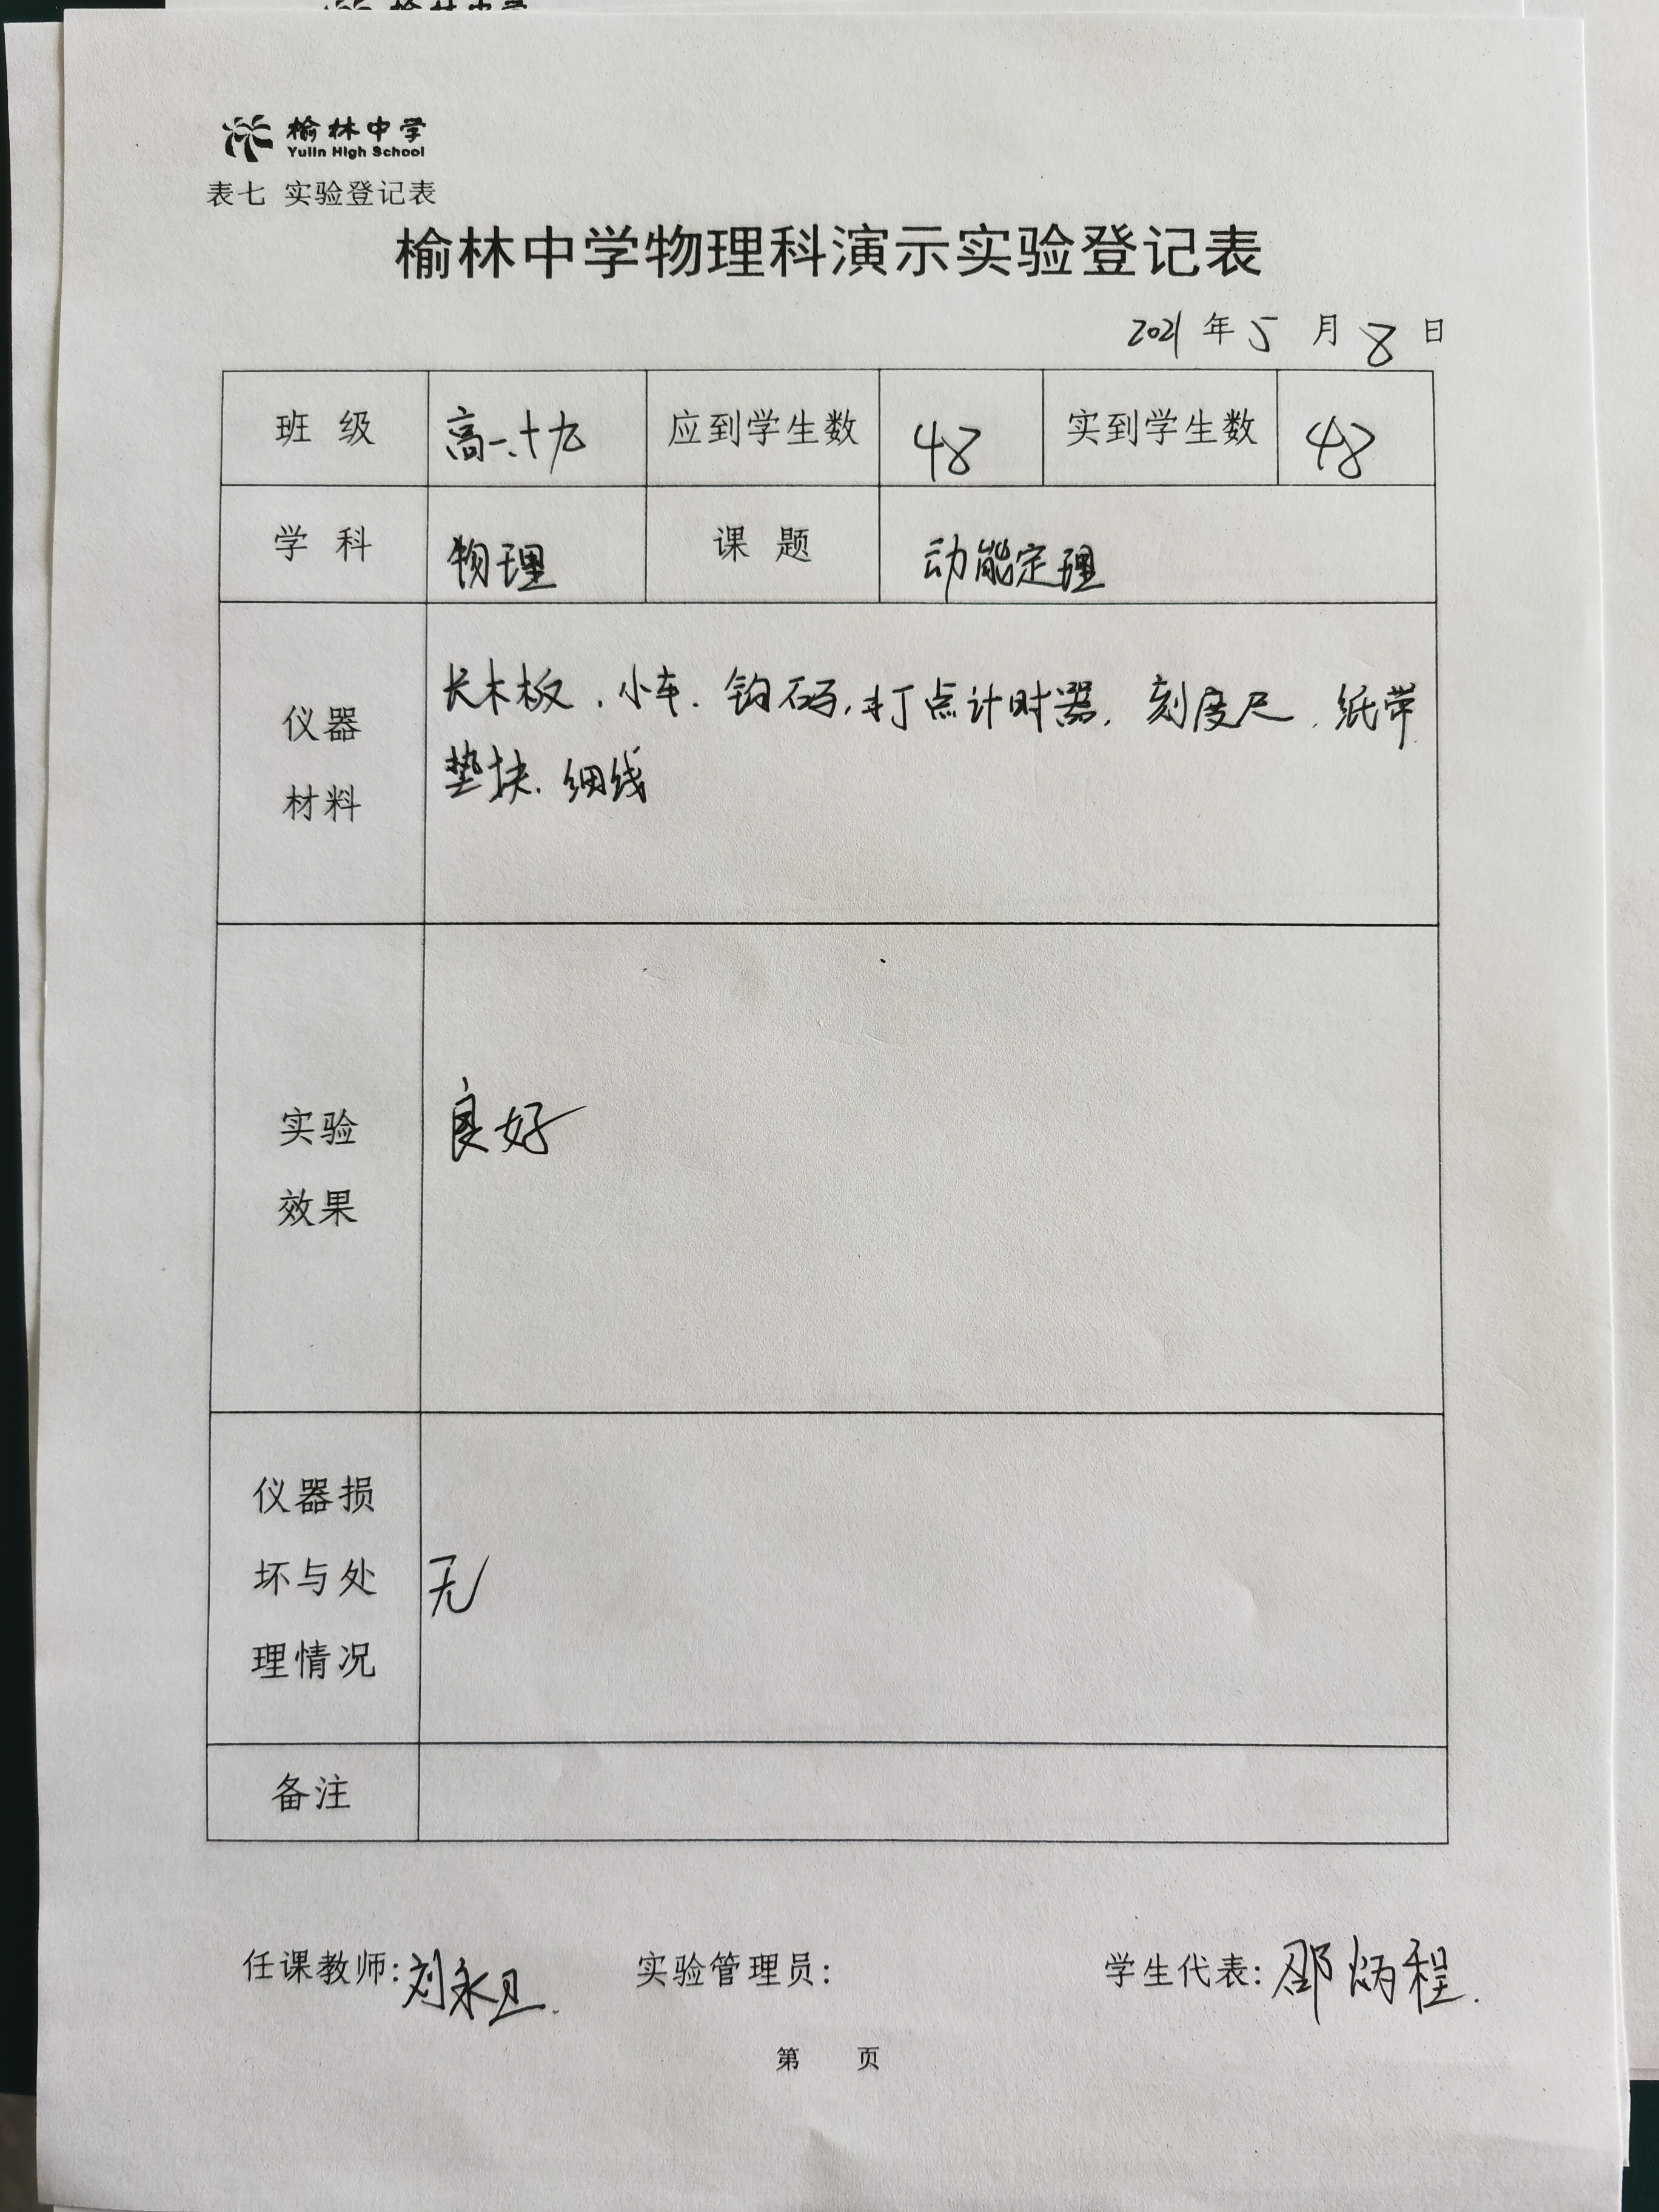 榆林中学
榆林中学
Yulin High School
表七 实验登记表
榆林中学物理科演示实验登记表
2021 年 5 月 8 日
班 级 高一.十九 应到学生数 48 实到学生数 48
学 科 物理 课 题 动能定理
长木板.小车.钩码,打点计时器,刻度尺,纸带
仪器
材料
垫块.细线
实验
效果
良好
仪器损
坏与处
理情况
无
备注
任课教师:刘永卫. 实验管理员: 学生代表:邵炳程.
第 页